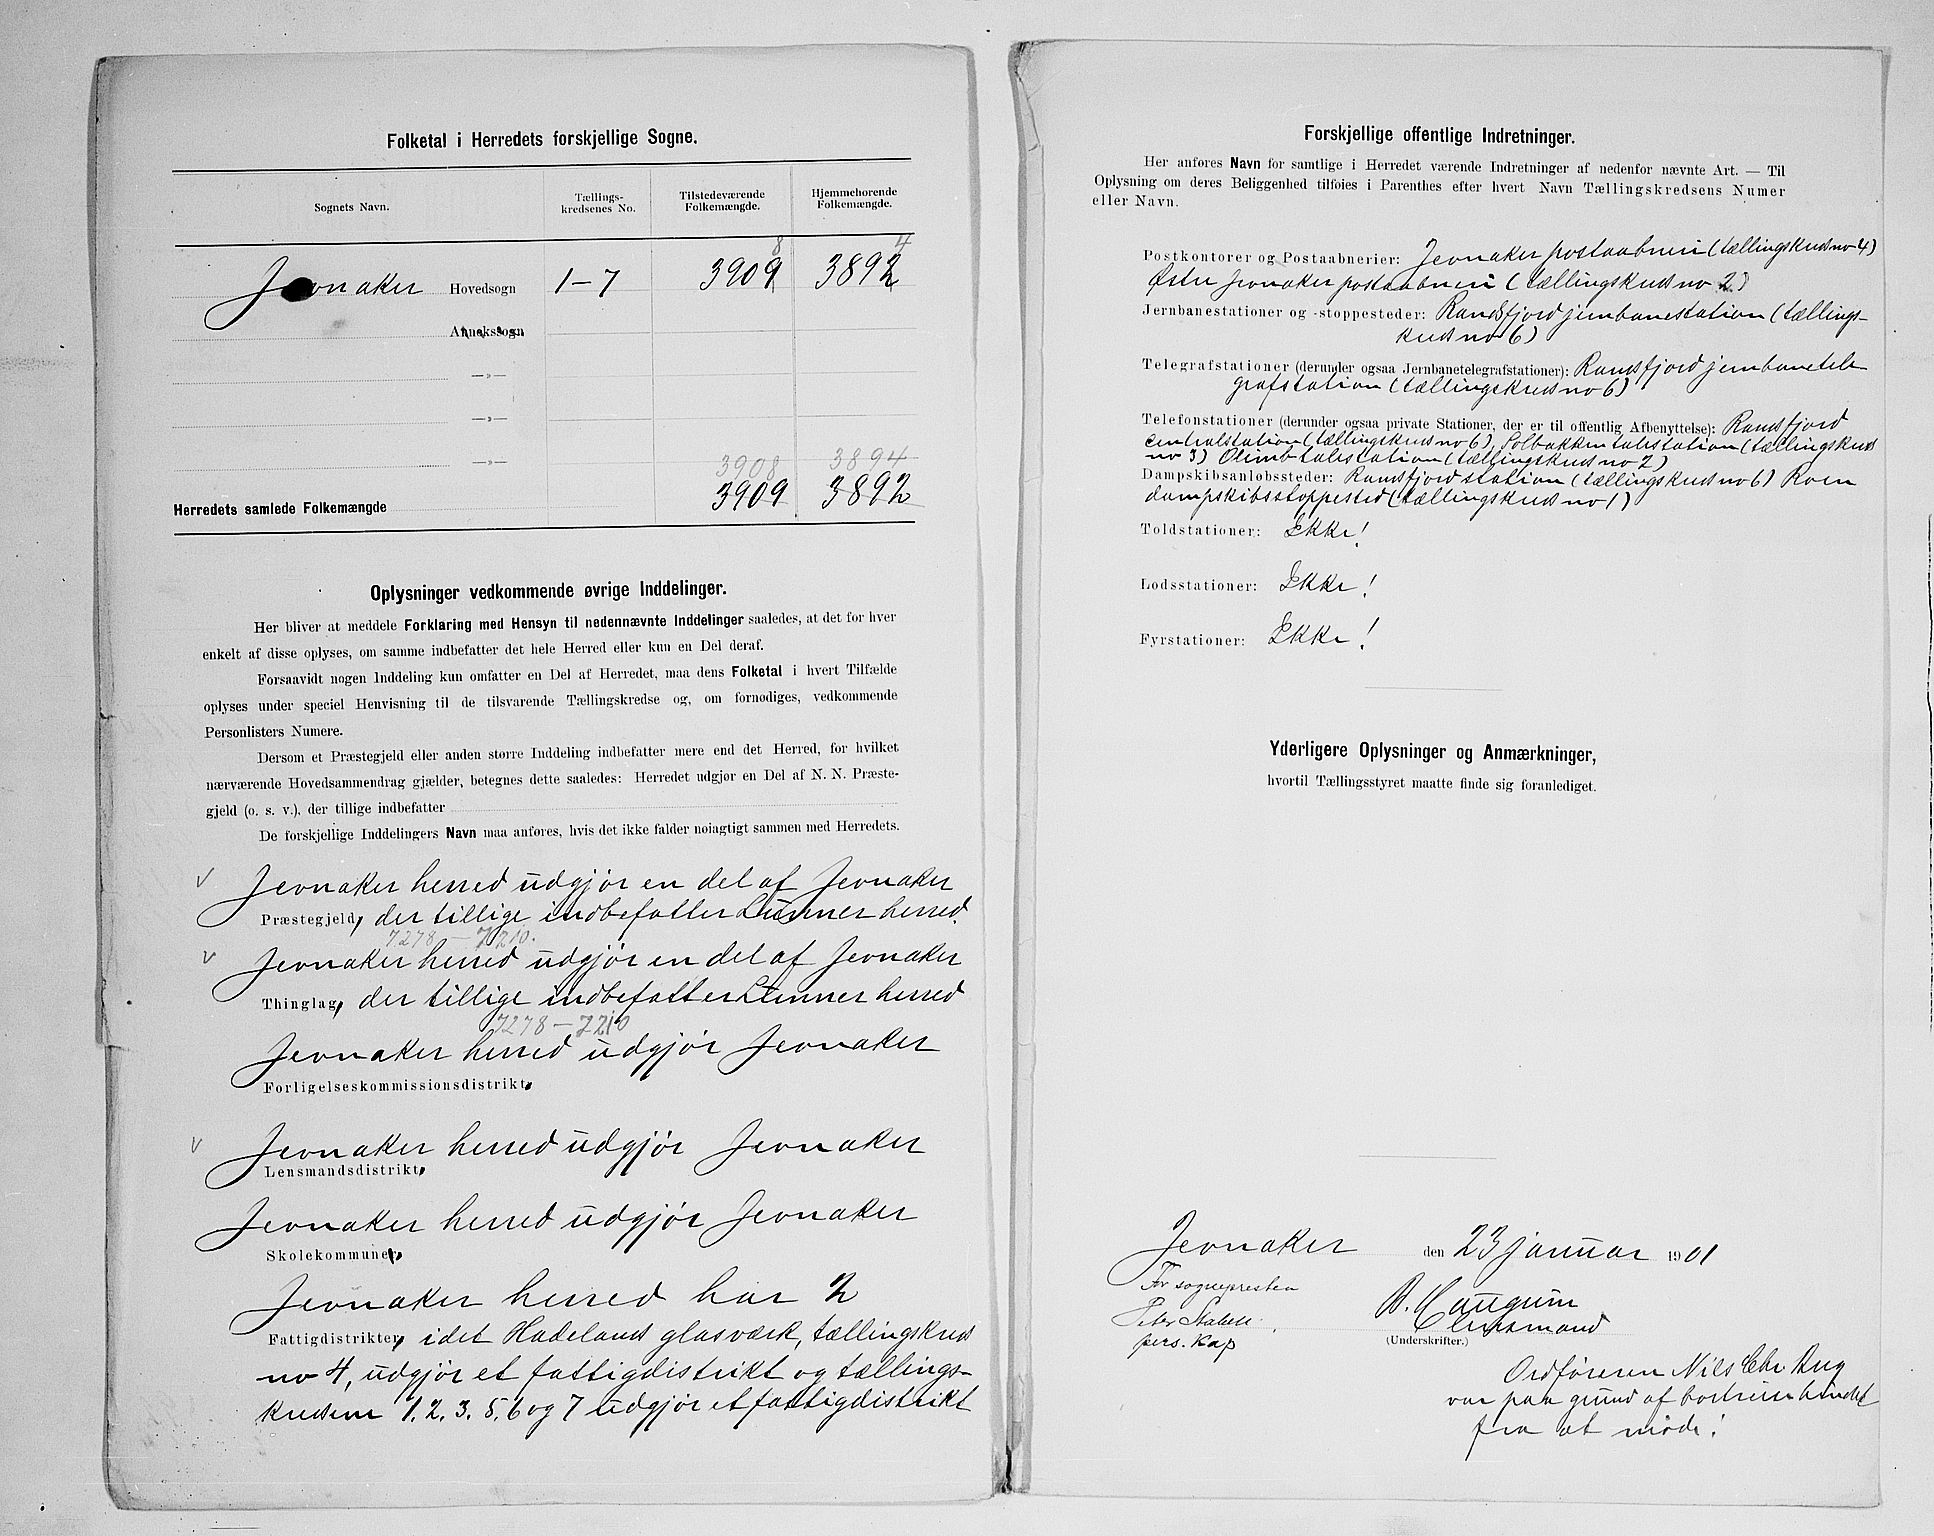 Folketal i Herredets forskjellige Sogne.
Sognets Navn.
Tællings-
kredsenes No.
Tilstedeværende
Folkemængde.
Hjemmehørende
Folkemængde.
8 4
Jevnaker Hovedsogn 1-7 3909 3892
Annekssogn
—»—
—»—
—»—
3908 3894
Herredets samlede Folkemængde 3909 3892
Oplysninger vedkommende øvrige Inddelinger.
Her bliver at meddele Forklaring med Hensyn til nedennævnte Inddelinger saaledes, at det for hver
enkelt af disse oplyses, om samme indbefatter det hele Herred eller kun en Del deraf.
Forsaavidt nogen Inddeling kun omfatter en Del af Herredet, maa dens Folketal i hvert Tilfælde
oplyses under speciel Henvisning til de tilsvarende Tællingskredse og, om fornødiges, vedkommende
Personlisters Numere.
Dersom et Præstegjeld eller anden større Inddeling indbefatter mere end det Herred, for hvilket
nærværende Hovedsammendrag gjælder, betegnes dette saaledes: Herredet udgjør en Del af N. N. Præste-
gjeld (o. s. v.), der tillige indbefatter
De forskjellige Inddelingers Navn maa anføres, hvis det ikke falder nøiagtigt sammen med Herredets.
Jevnaker herred udgjør en del af Jevnaker
Præstegjeld, der tillige indbefatter Lunner herred.
7278 — 7210.
Jevnaker herred udgjør en del af Jevnaker
Thinglag, der tillige indbefatter Lunner herred
7278 — 7210
Jevnaker herred udgjør Jevnaker
Forligelseskommissionsdistrikt,
Jevnaker herred udgjør Jevnaker
Lensmandsdistrikt,
Jevnaker herred udgjør Jevnaker
Skolekommune,
Jevnaker herred har 2
Fattigdistrikter, idet Hadelands glasværk, tællingskreds
no 4, udgjør et fattigdistrikt og tællings-
kredsene 1. 2. 3. 5. 6 og 7 udgjør et fattigdistrikt
Forskjellige offentlige Indretninger.
Her anføres Navn for samtlige i Herredet værende Indretninger af nedenfor nævnte Art. — Til
Oplysning om deres Beliggenhed tilføies i Parenthes efter hvert Navn Tællingskredsens Numer
eller Navn.
Postkontorer og Postaabnerier: Jevnaker postaabneri (tællingskreds no 4)
Østre Jevnaker postaabneri (tællingskreds no 2)
Jernbanestationer og -stoppesteder: Randsfjord jernbanestation (tællings-
kreds no 6)
Telegrafstationer (derunder ogsaa Jernbanetelegrafstationer): Randsfjord jernbanetele
grafstation (tællingskreds no 6)
Telefonstationer (derunder ogsaa private Stationer, der er til offentlig Afbenyttelse): Randsfjord
centralstation (tællingskreds no 6), Solbakken talestation (tællingskreds
no 3) Olimb talestation (tællingskreds no 2)
Dampskibsanløbssteder: Randsfjord station (tællingskreds no 6) Roen
dampskibsstoppested (tællingskreds no 1)
Toldstationer: Ikke!
Lodsstationer: Ikke!
Fyrstationer: Ikke!
Yderligere Oplysninger og Anmærkninger,
hvortil Tællingsstyret maatte finde sig foranlediget.
Jevnaker den 23 januar 1901
For sognepresten
Peter
pers. Kap
B. Haugum
Lensmand
(Underskrifter.)
Ordføreren Nils Chr
var paa grund af bortreise hindret
fra at møde!